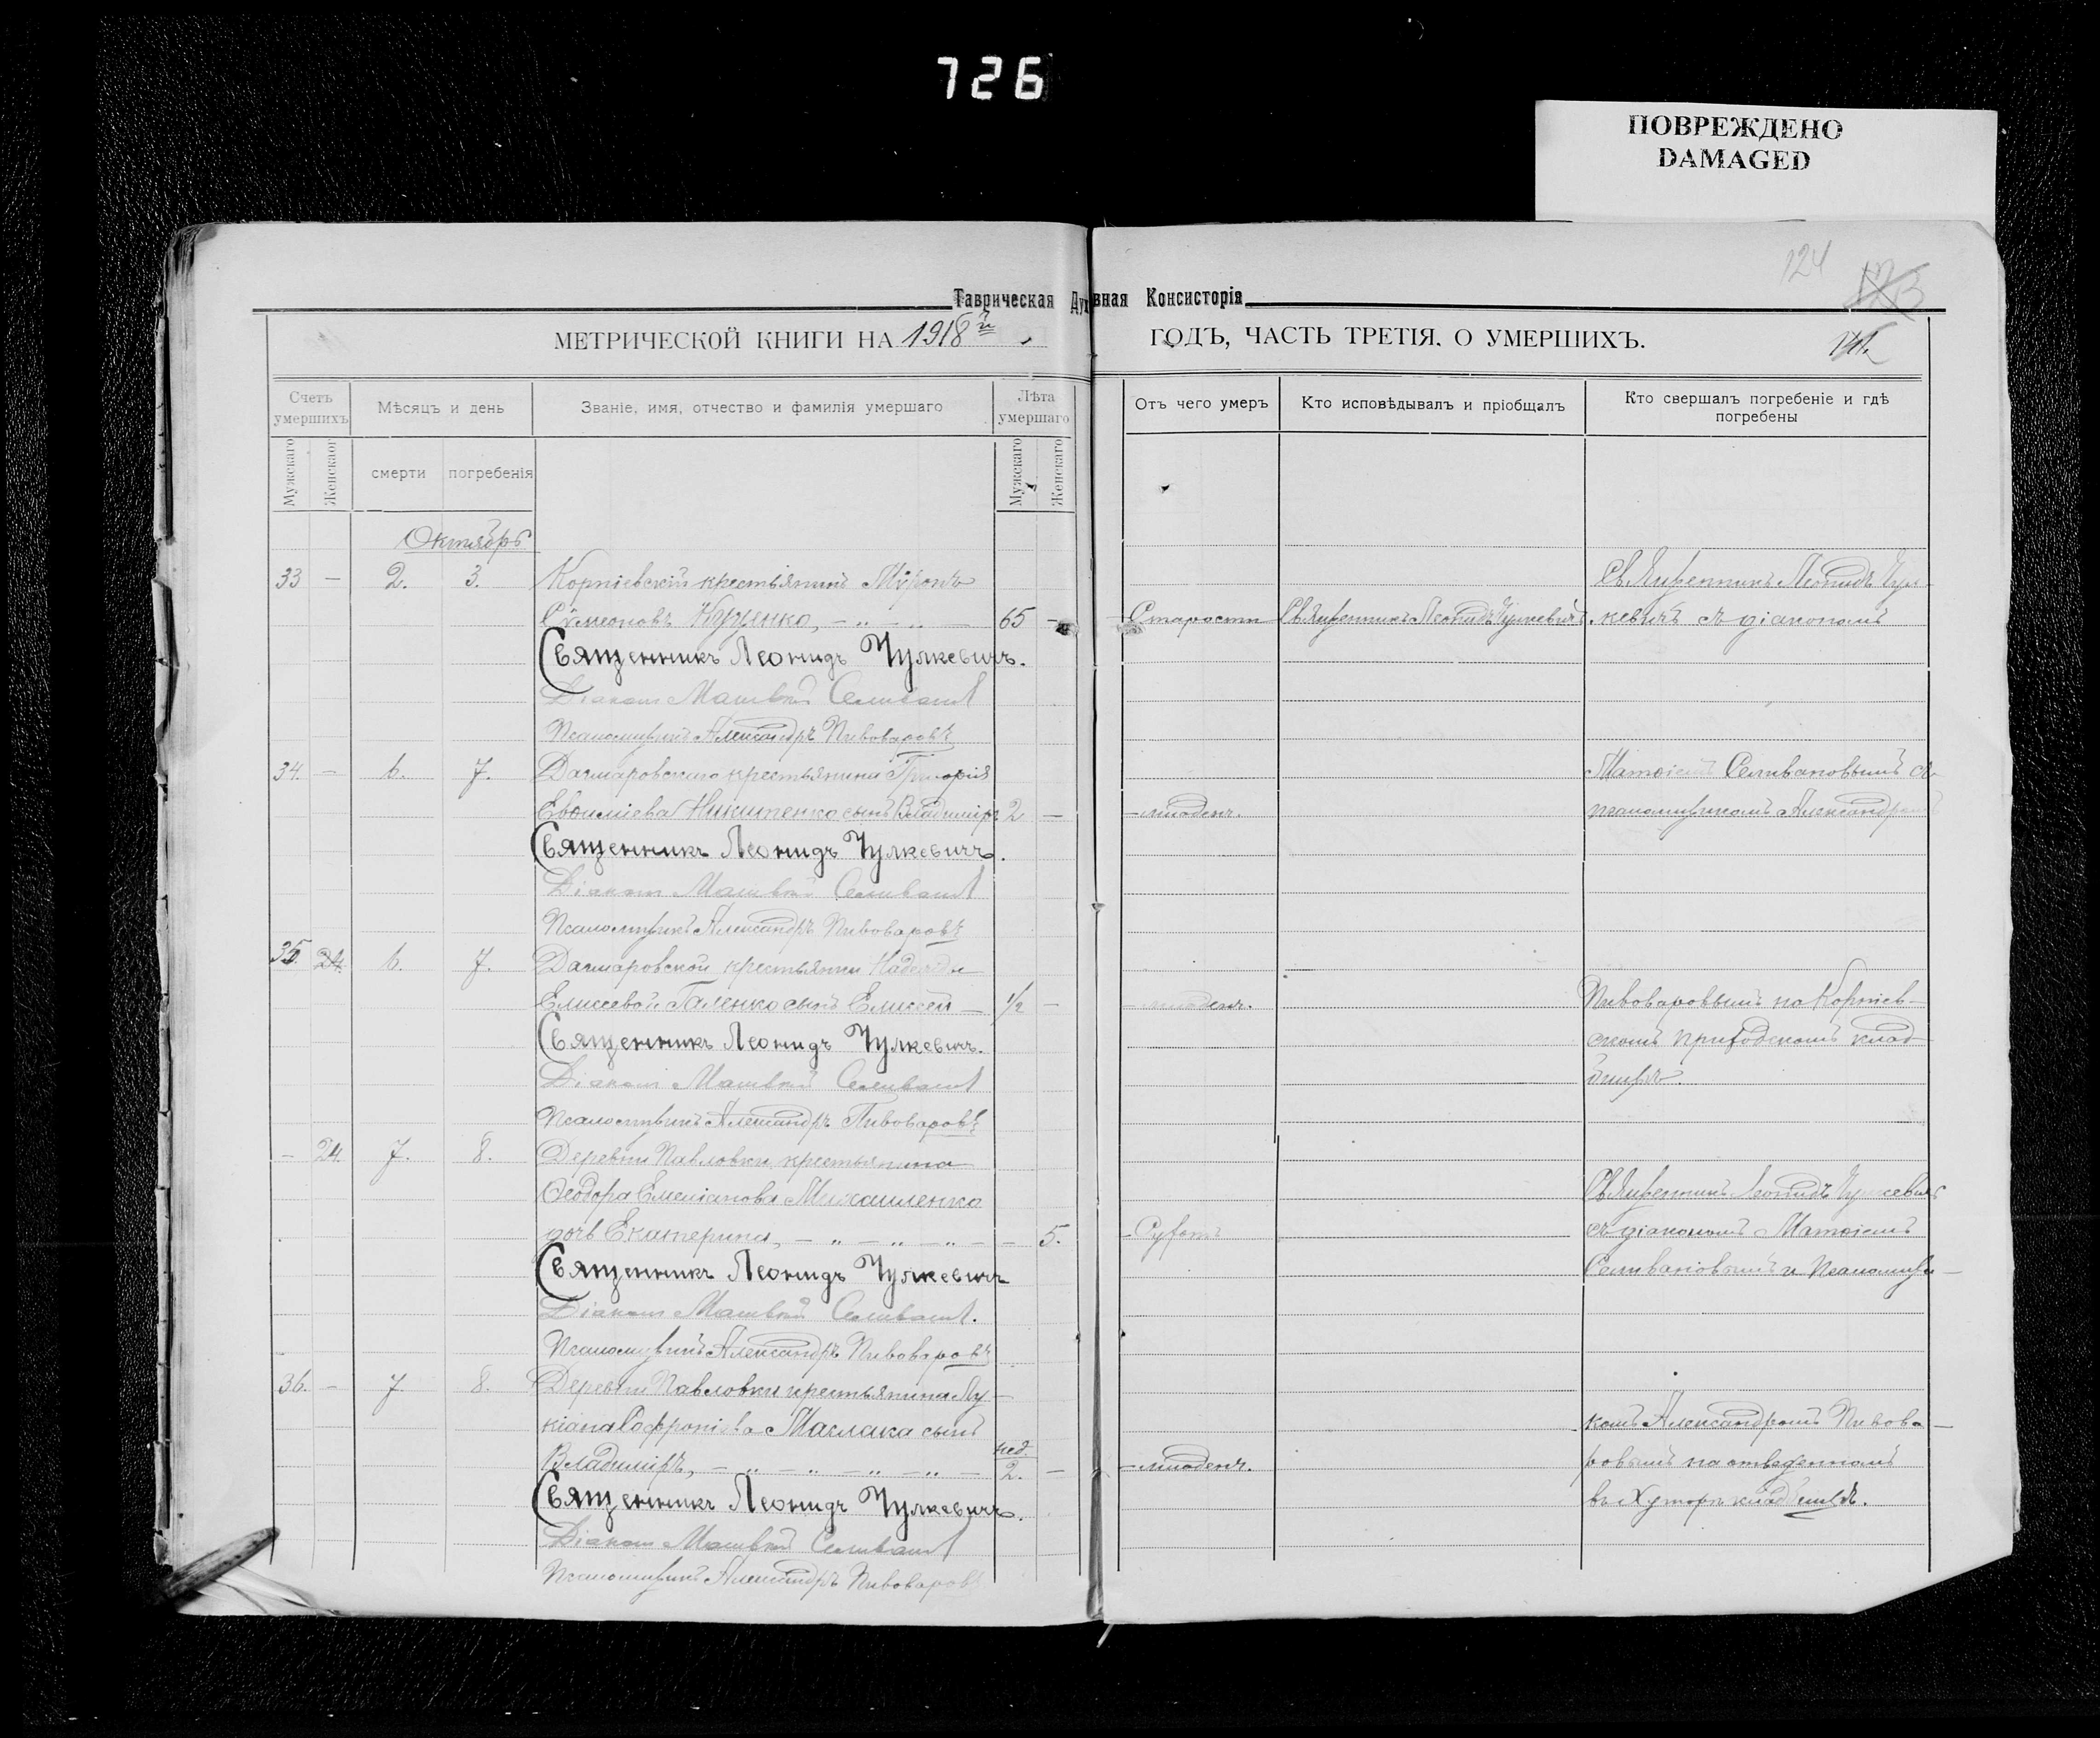 726
ПОВРЕЖДЕНО
DAMAGED
124
Таврическая Духовная Консисторія
МЕТРИЧЕСКОЙ КНИГИ НА 1918й ГОДЪ, ЧАСТЬ ТРЕТІЯ, О УМЕРШИХЪ.
Счетъ умершихъ
Мужскаго
Женскаог
Мѣсяцъ и день
смерти
погребенія
Званіе, имя, отчество и фамилія умершаго
Лѣта умершаго
Мужскаго
Женскаго
Отъ чего умеръ
Кто исповѣдывалъ и пріобщалъ
Кто свершалъ погребеніе и гдѣ погребены
Октябрь
33 — 2. 3. Корніевскій крестьянинъ Мѵронъ
Сѵмеоновъ Куценко, — „ — „ — 65 —
Священникъ Леонидъ Чулкевичъ.
Діаконъ Матвѣй Селиванов
Псаломщикъ Александръ Пивоваровъ
34. — 6. 7. Дачмаровскаго крестьянина Григорія
Евѳиміева Никитенко сынъ Владиміръ 2 —
Священникъ Леонидъ Чулкевичъ.
Діаконъ Матвѣй Селиванов
Псаломщикъ Александръ Пивоваровъ
35. 24. 6. 7. Дачмаровской крестьянки Надежды
Елисеевой Галенко сынъ Елисей — 1/2 —
Священникъ Леонидъ Чулкевичъ.
Діаконъ Матвѣй Селиванов
Псаломщикъ Александръ Пивоваровъ
— 24. 7. 8. Деревни Павловки крестьянина
Ѳеодора Емеліанова Михайленко
дочь Екатерина, — „ — „ — „ — — 5.
Священникъ Леонидъ Чулкевичъ
Діаконъ Матвѣй Селиванов.
Псаломщикъ Александръ Пивоваровъ
36. — 7. 8. Деревни Павловки крестьянина Лу-
кіана Софроніева Маслака сынъ
Владиміръ, — „ — „ — „ — „ — нед. 2. —
Священникъ Леонидъ Чулкевичъ.
Діаконъ Матвѣй Селиванов
Псаломщикъ Александръ Пивоваровъ
Старости
Священникъ Леонидъ Чулкевичъ
Священникъ Леонидъ Чул-
кевичъ съ діакономъ
младенч.
Матѳіемъ Селивановымъ съ
псаломщикомъ Александромъ
младенч.
Пивоваровымъ на Корніев-
скомъ приходскомъ клад-
бищѣ.
Сухотъ
Священникъ Леонидъ Чулкевичъ
съ діакономъ Матѳіемъ
Селивановымъ и псаломщи-
младенч.
комъ Александромъ Пивова-
ровымъ на отведенномъ
въ Хуторѣ кладбищѣ.